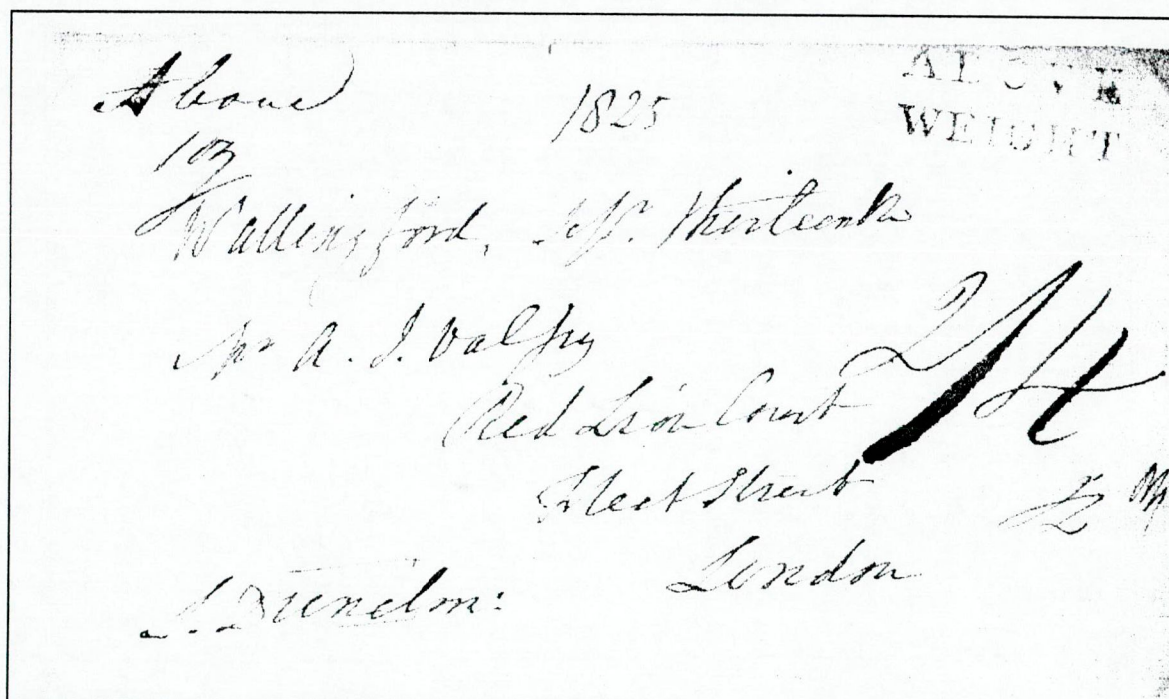 Above
1 oz
1825
ABOVE
WEIGHT
Wallingford, Sepr. thirteenth
Mr A. J. Valpy
Red Lion Court
2/4
Fleet Street
London
S. Dunelm: